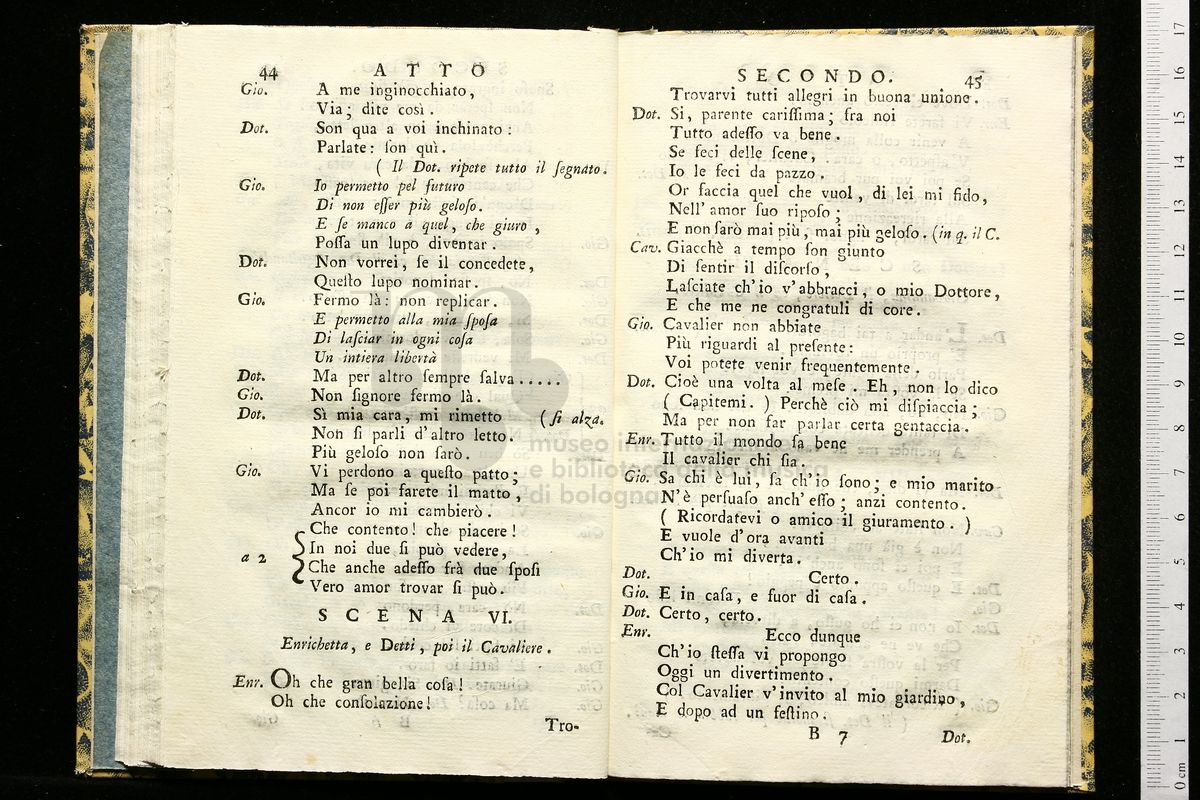 44 ATTO
Gio. A me inginocchiato,
Via; dite così.
Dot. Son qua a voi inchinato:
Parlate: ſon quì.
( Il Dot. ripete tutto il ſegnato.
Gio. Io permetto pel futuro
Di non eſſer più geloſo.
E ſe manco a quel, che giuro,
Poſſa un lupo diventar.
Dot. Non vorrei, ſe il concedete,
Queſto lupo nominar.
Gio. Fermo là: non replicar.
E permetto alla mia ſpoſa
Di laſciar in ogni coſa
Un intiera libertà
Dot. Ma per altro ſempre ſalva.....
Gio. Non ſignore fermo là.
Dot. Sì mia cara, mi rimetto (ſi alza.
Non ſi parli d'altro letto.
Più geloſo non ſarò.
Gio. Vi perdono a queſto patto;
Ma ſe poi farete il matto,
Ancor io mi cambierò.
Che contento! che piacere!
a 2 In noi due ſi può vedere,
Che anche adeſſo frà due ſpoſi
Vero amor trovar ſi può.
SCENA VI.
Enrichetta, e Detti, poi il Cavaliere.
Enr. Oh che gran bella coſa!
Oh che conſolazione!
Tro-
SECONDO. 45
Trovarvi tutti allegri in buona unione.
Dot. Si, parente cariſſima; fra noi
Tutto adeſſo va bene.
Se feci delle ſcene,
Io le feci da pazzo.
Or faccia quel che vuol, di lei mi fido,
Nell'amor ſuo ripoſo;
E non ſarò mai più, mai più geloſo. (in q. il C.
Cav. Giacchè a tempo ſon giunto
Di ſentir il diſcorſo,
Laſciate ch'io v'abbracci, o mio Dottore,
E che me ne congratuli di core.
Gio. Cavalier non abbiate
Più riguardi al preſente:
Voi potete venir frequentemente.
Dot. Cioè una volta al meſe. Eh, non lo dico
( Capitemi. ) Perchè ciò mi diſpiaccia;
Ma per non far parlar certa gentaccia.
Enr. Tutto il mondo ſa bene
Il cavalier chi ſia.
Gio. Sa chi è lui, ſa ch'io ſono; e mio marito
N'è perſuaſo anch'eſſo; anzi contento.
( Ricordatevi o amico il giuramento. )
E vuole d'ora avanti
Ch'io mi diverta.
Dot. Certo.
Gio. E in caſa, e fuor di caſa.
Dot. Certo, certo.
Enr. Ecco dunque
Ch'io ſteſſa vi propongo
Oggi un divertimento.
Col Cavalier v'invito al mio giardino,
E dopo ad un feſtino.
B 7 Dot.
museo internazionale
e biblioteca della musica
di bologna
0 cm 1 2 3 4 5 6 7 8 9 10 11 12 13 14 15 16 17